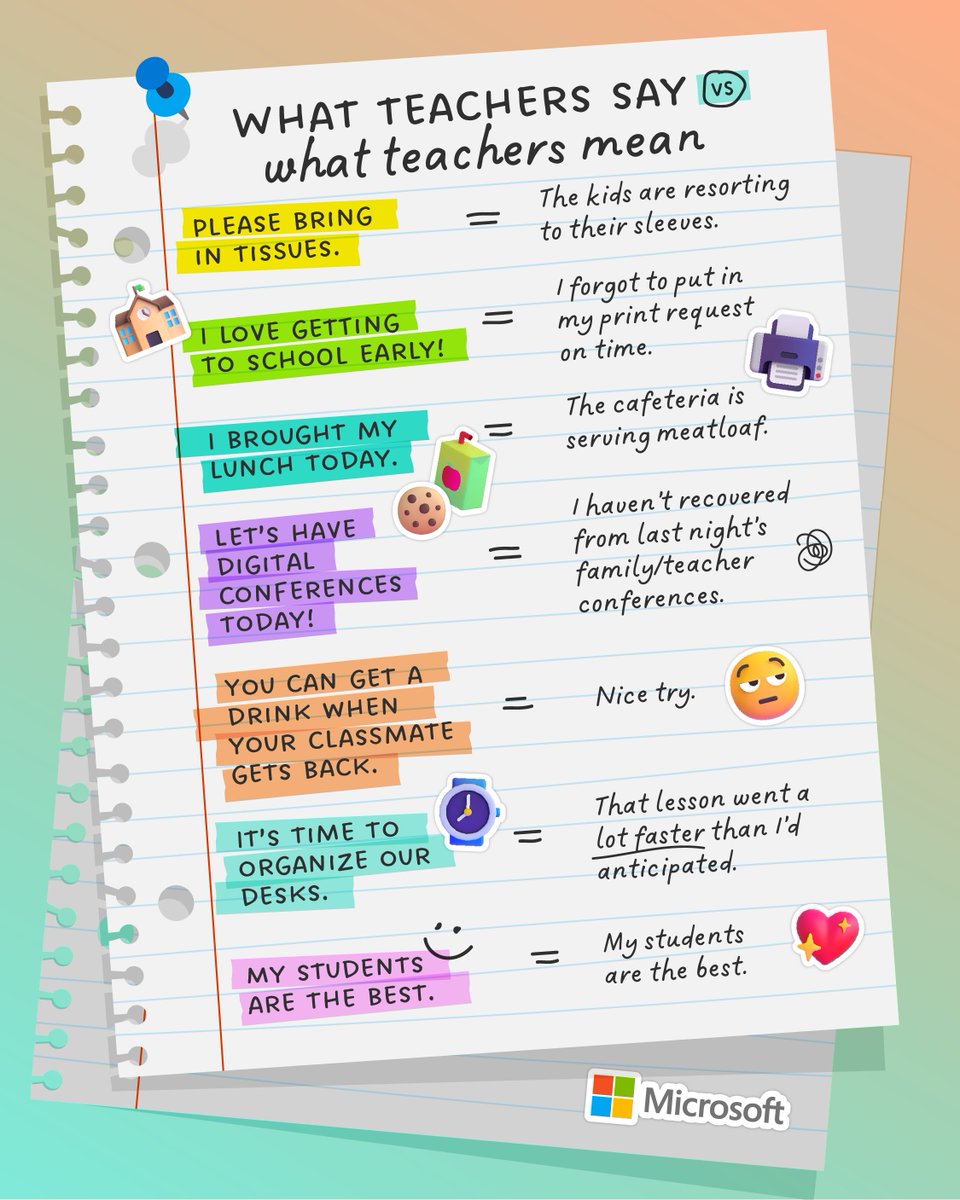 WHAT TEACHERS SAY VS
what teachers mean
PLEASE BRING
IN TISSUES.
=
The kids are resorting
to their sleeves.
I LOVE GETTING
TO SCHOOL EARLY!
=
I forgot to put in
my print request
on time.
I BROUGHT MY
LUNCH TODAY.
=
The cafeteria is
serving meatloaf.
LET'S HAVE
DIGITAL
CONFERENCES
TODAY!
=
I haven't recovered
from last night's
family/teacher
conferences.
YOU CAN GET A
DRINK WHEN
YOUR CLASSMATE
GETS BACK.
=
Nice try.
IT'S TIME TO
ORGANIZE OUR
DESKS.
=
That lesson went a
lot faster than I'd
anticipated.
MY STUDENTS
ARE THE BEST.
=
My students
are the best.
Microsoft